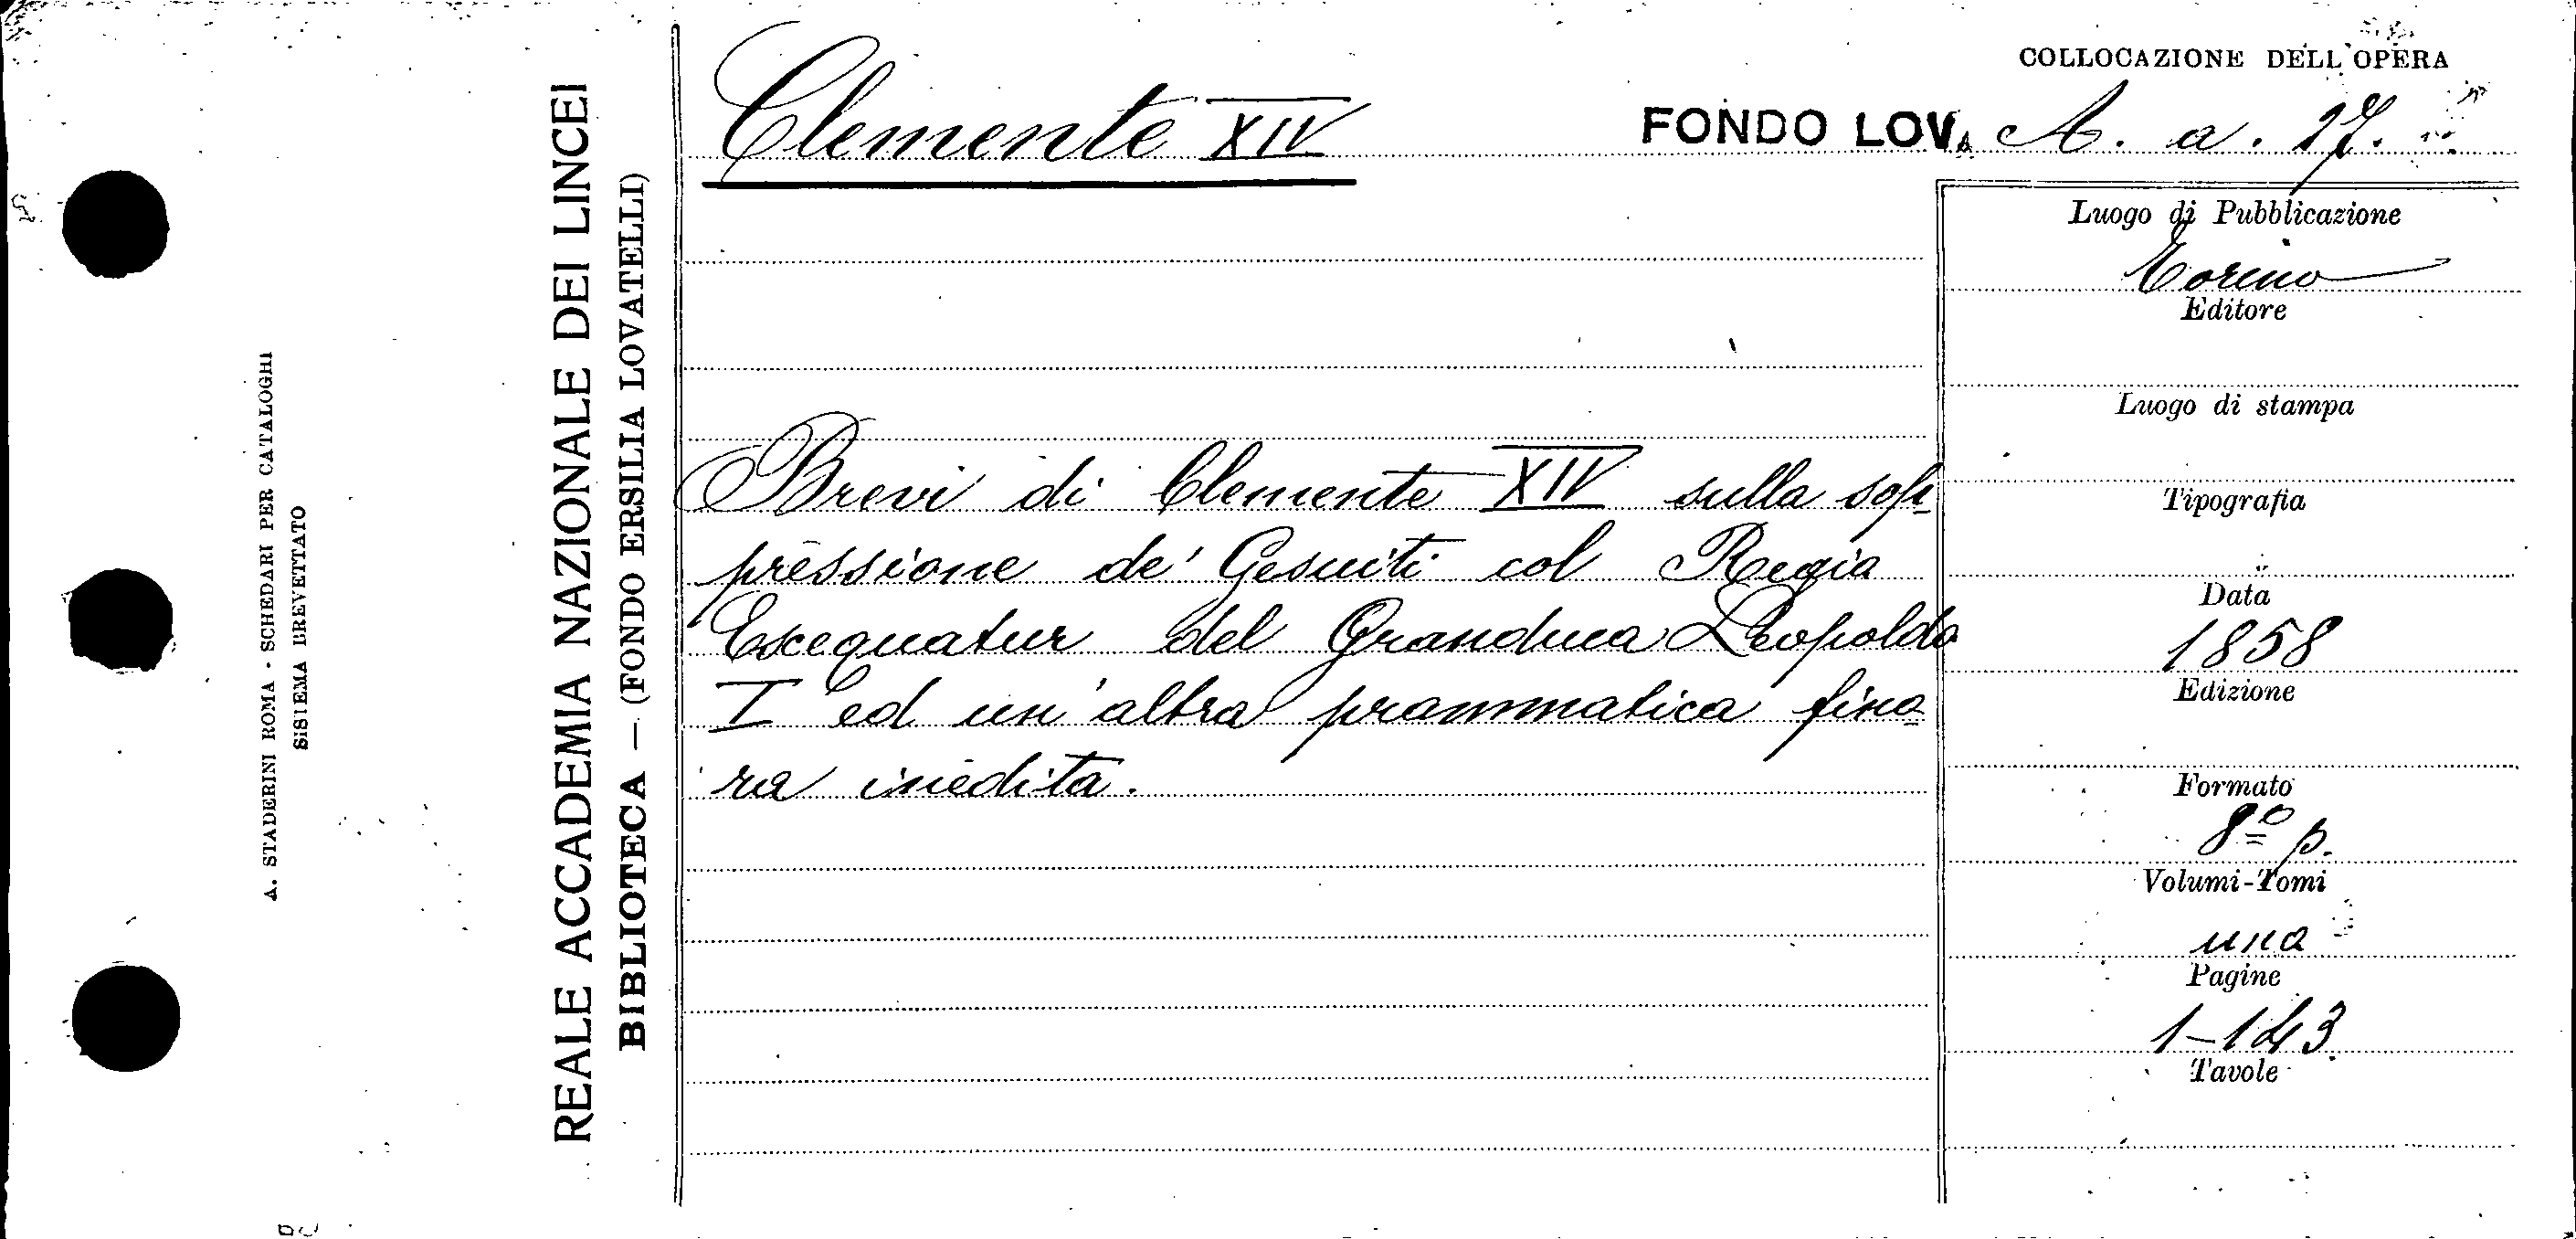 COLLOCAZIONE DELL'OPERA
Clemente XIV
FONDO LOV. A. a. 17.
Brevi di Clemente XIV sulla sop
pressione de' Gesuiti col Regia
Exequatur del Granduca Leopoldo
I ed un'altra prammatica fino
ra inedita.
Luogo di Pubblicazione
Torino
Editore
Luogo di stampa
Tipografia
Data
1858
Edizione
Formato
8º p.
Volumi-Tomi
uno
Pagine
1-143.
Tavole
REALE ACCADEMIA NAZIONALE DEI LINCEI
BIBLIOTECA — (FONDO ERSILIA LOVATELLI)
A. STADERINI ROMA - SCHEDARI PER CATALOGHI
SISTEMA BREVETTATO